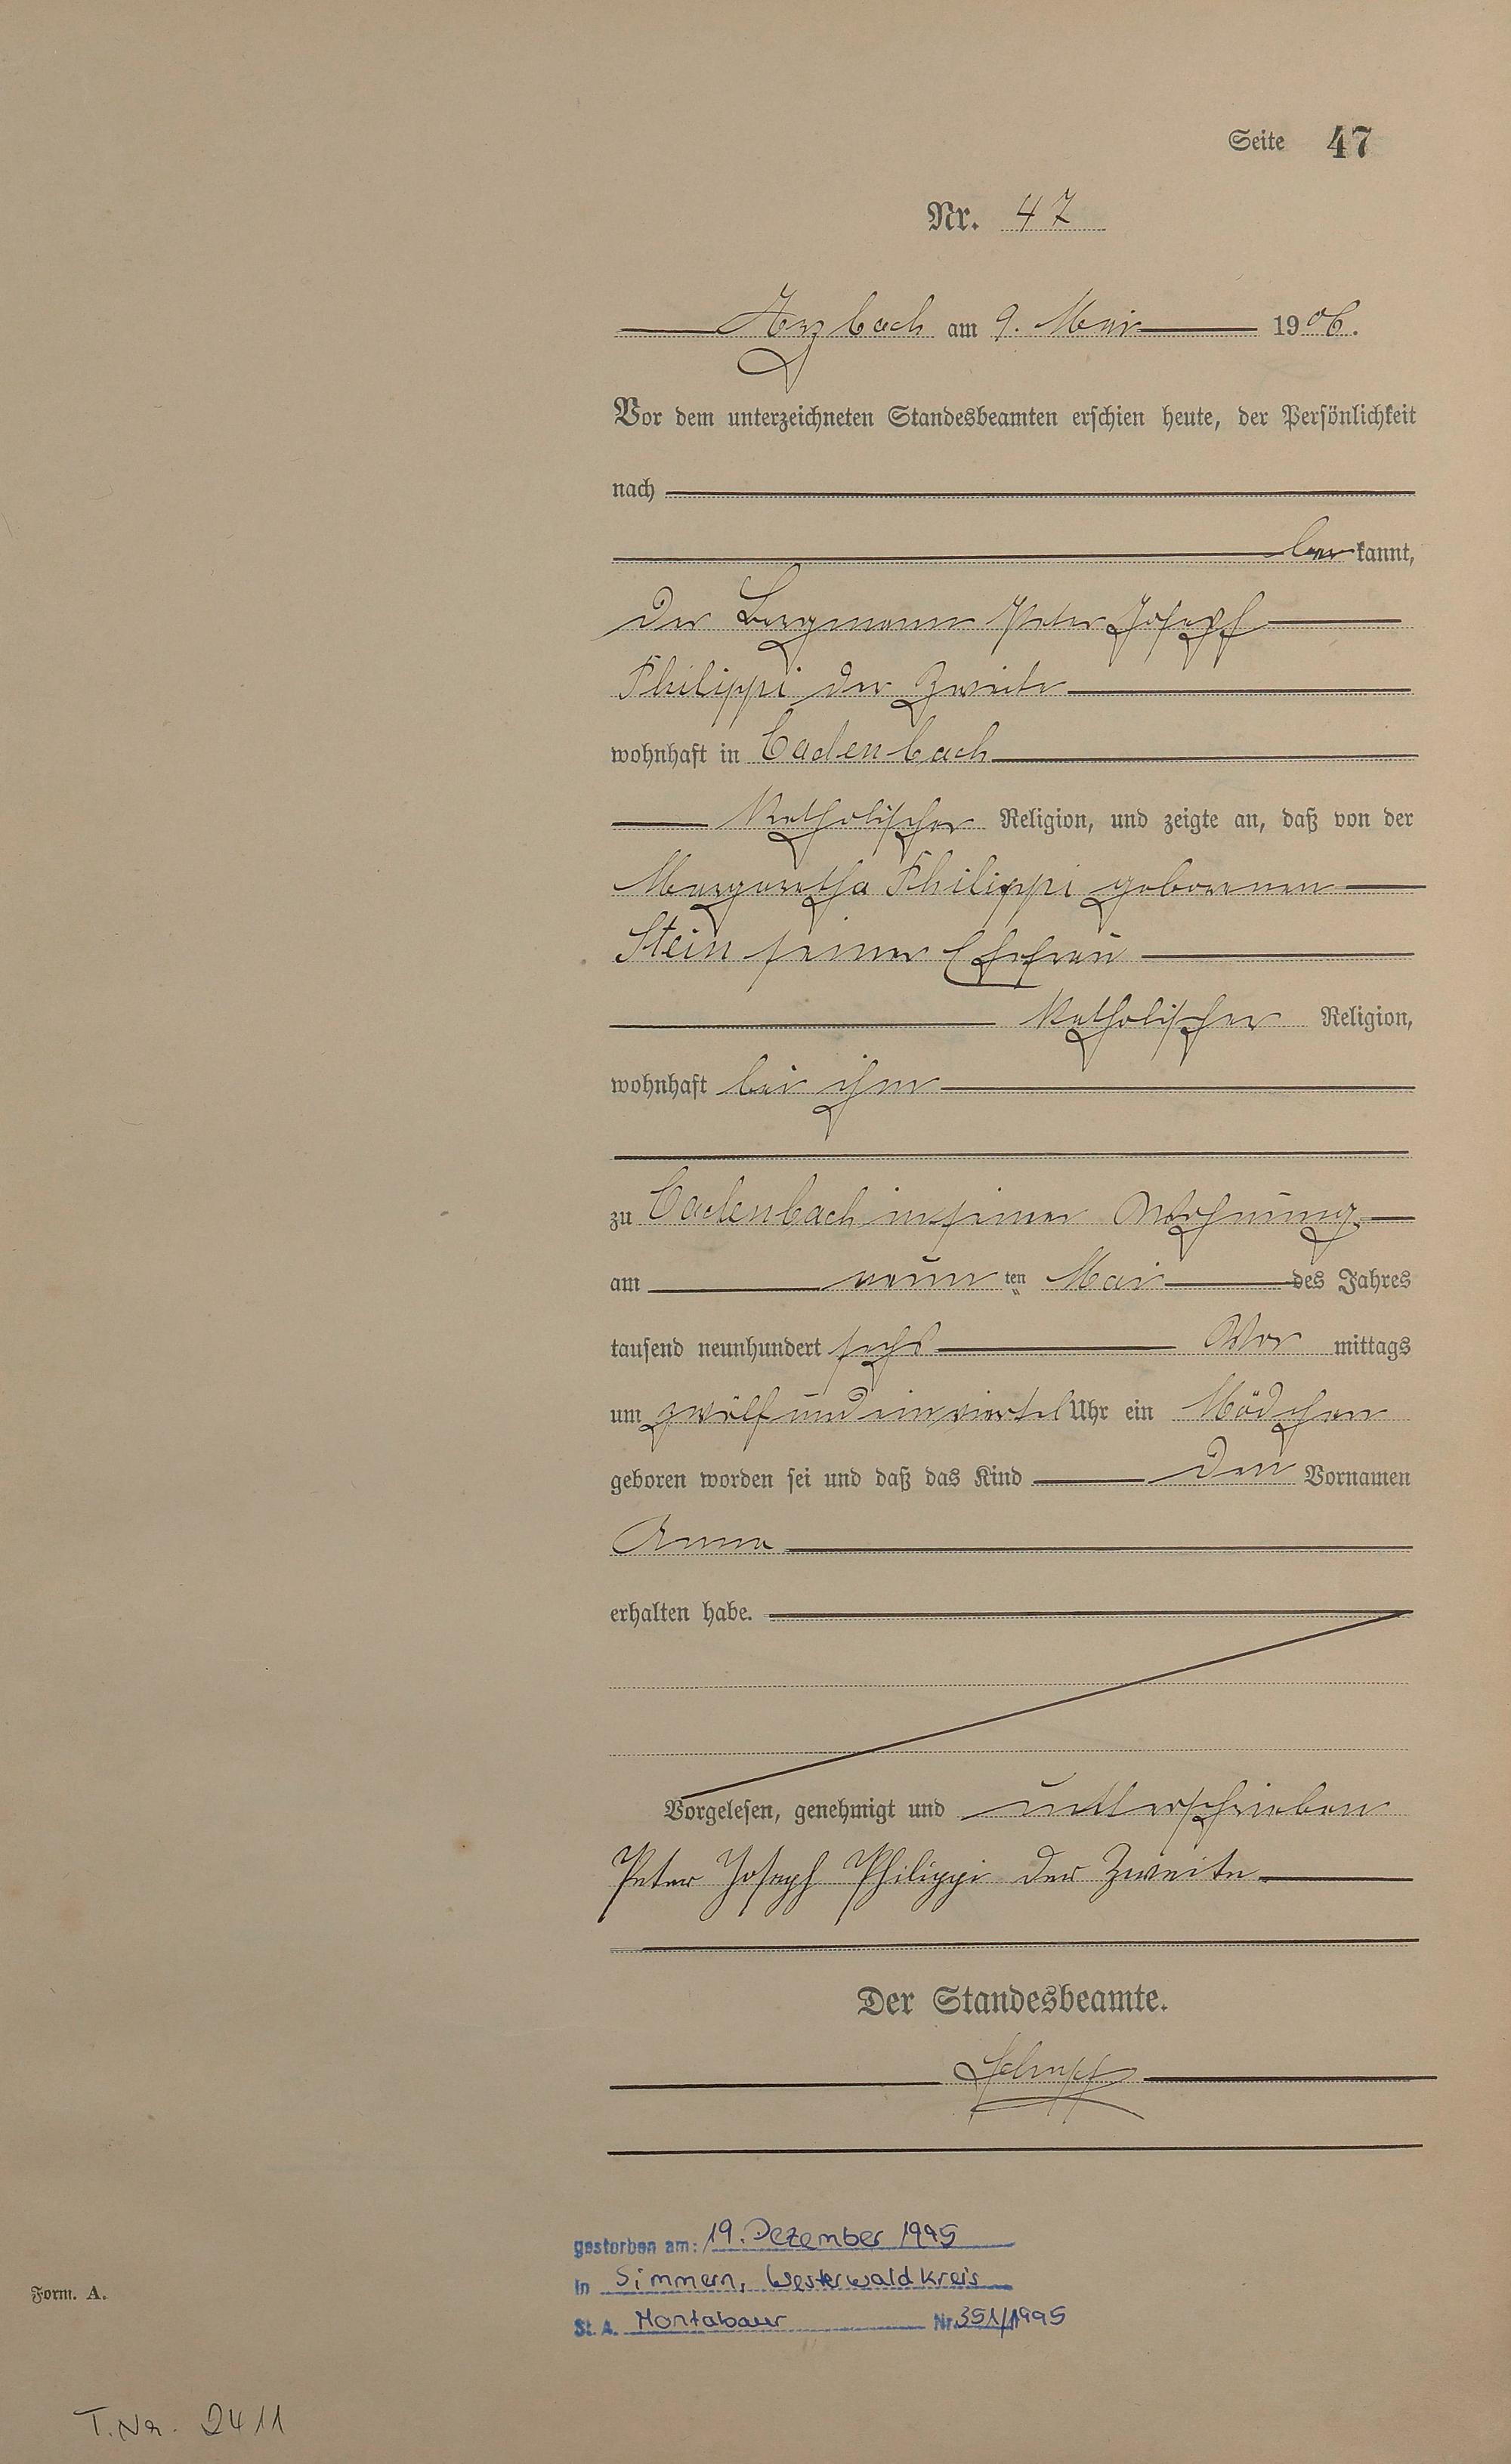 Seite 47
Nr. 47
Arzbach am 9. Mai 1906.
Vor dem unterzeichneten Standesbeamten erschien heute, der Persönlichkeit
nach
be kannt,
der Bergmann Peter Joseph
Philippi der Zweite
wohnhaft in Cadenbach
katholischer Religion, und zeigte an, daß von der
Margaretha Philippi geborenen
Stein seiner Ehefrau
katholischer Religion,
wohnhaft bei ihm
zu Cadenbach in seiner Wohnung
am neun ten Mai des Jahres
tausend neunhundert sechs Vor mittags
um zwölf und ein viertel Uhr ein Mädchen
geboren worden sei und daß das Kind den Vornamen
Anna
erhalten habe.
Vorgelesen, genehmigt und unterschrieben
Peter Joseph Philippi der Zweite
Der Standesbeamte.
gestorben am: 19. Dezember 1995
in Simmern, Westerwaldkreis
St. A. Montabaur Nr. 351/1995
Form. A.
T. Nr. 2411